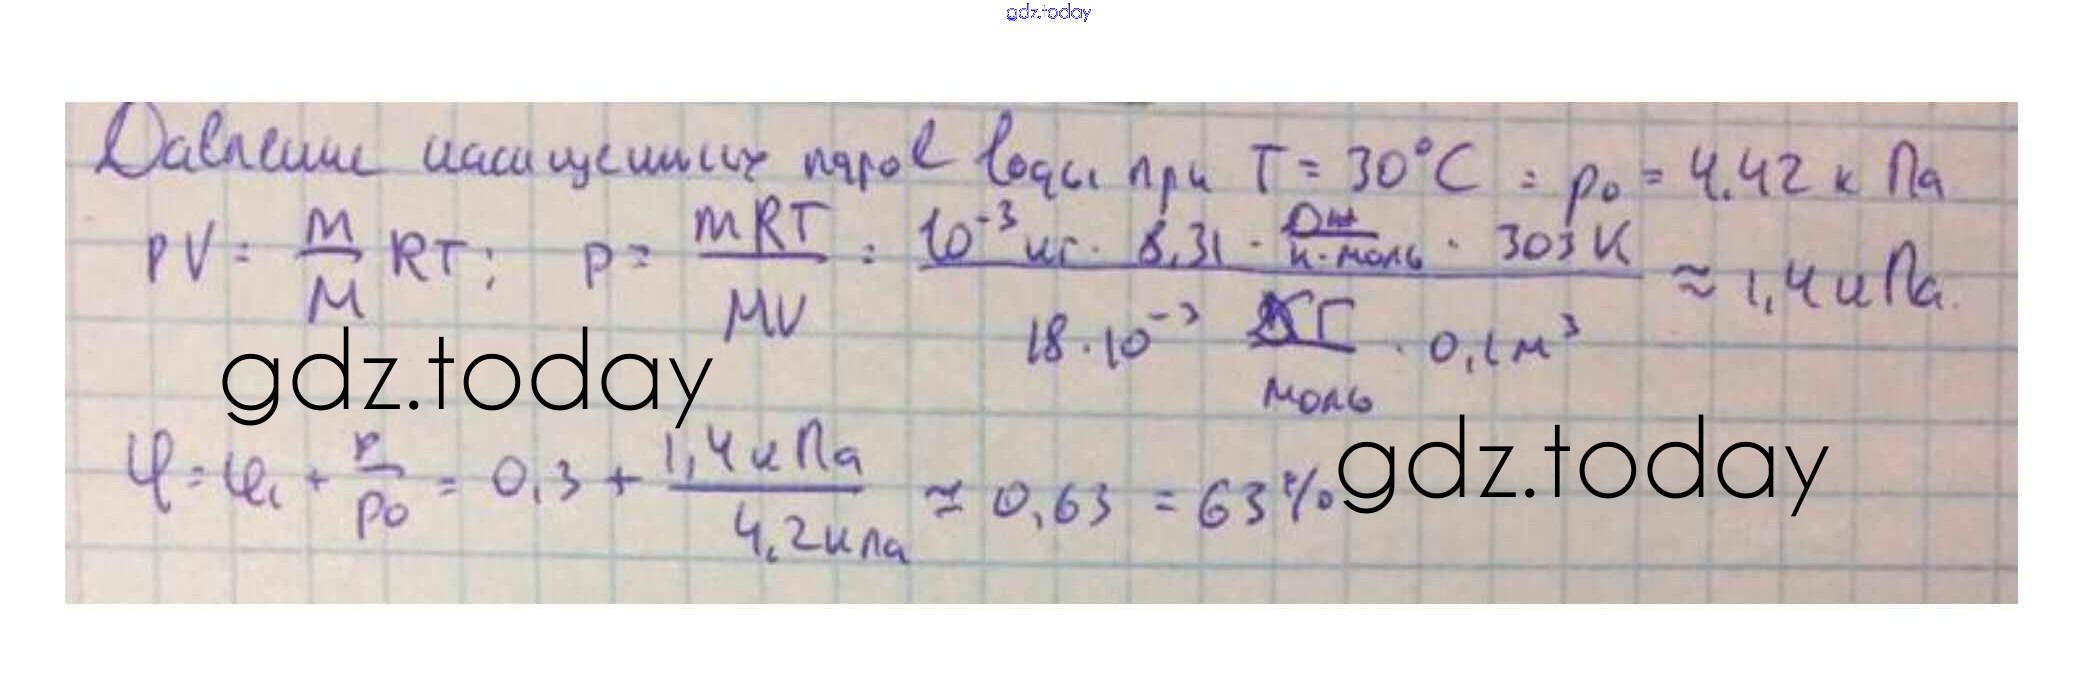 gdz.today
Давление насыщенных паров воды при T = 30°C = p₀ = 4.42 кПа
PV = m/M RT; p = mRT/MV = 10⁻³ кг · 8,31 · Дж/К·моль · 303 К / 18·10⁻³ кг/моль · 0,1 м³ ≈ 1,4 кПа.
gdz.today
φ = φ₁ + p/p₀ = 0,3 + 1,4 кПа/4,2 кПа ≈ 0,63 = 63%
gdz.today